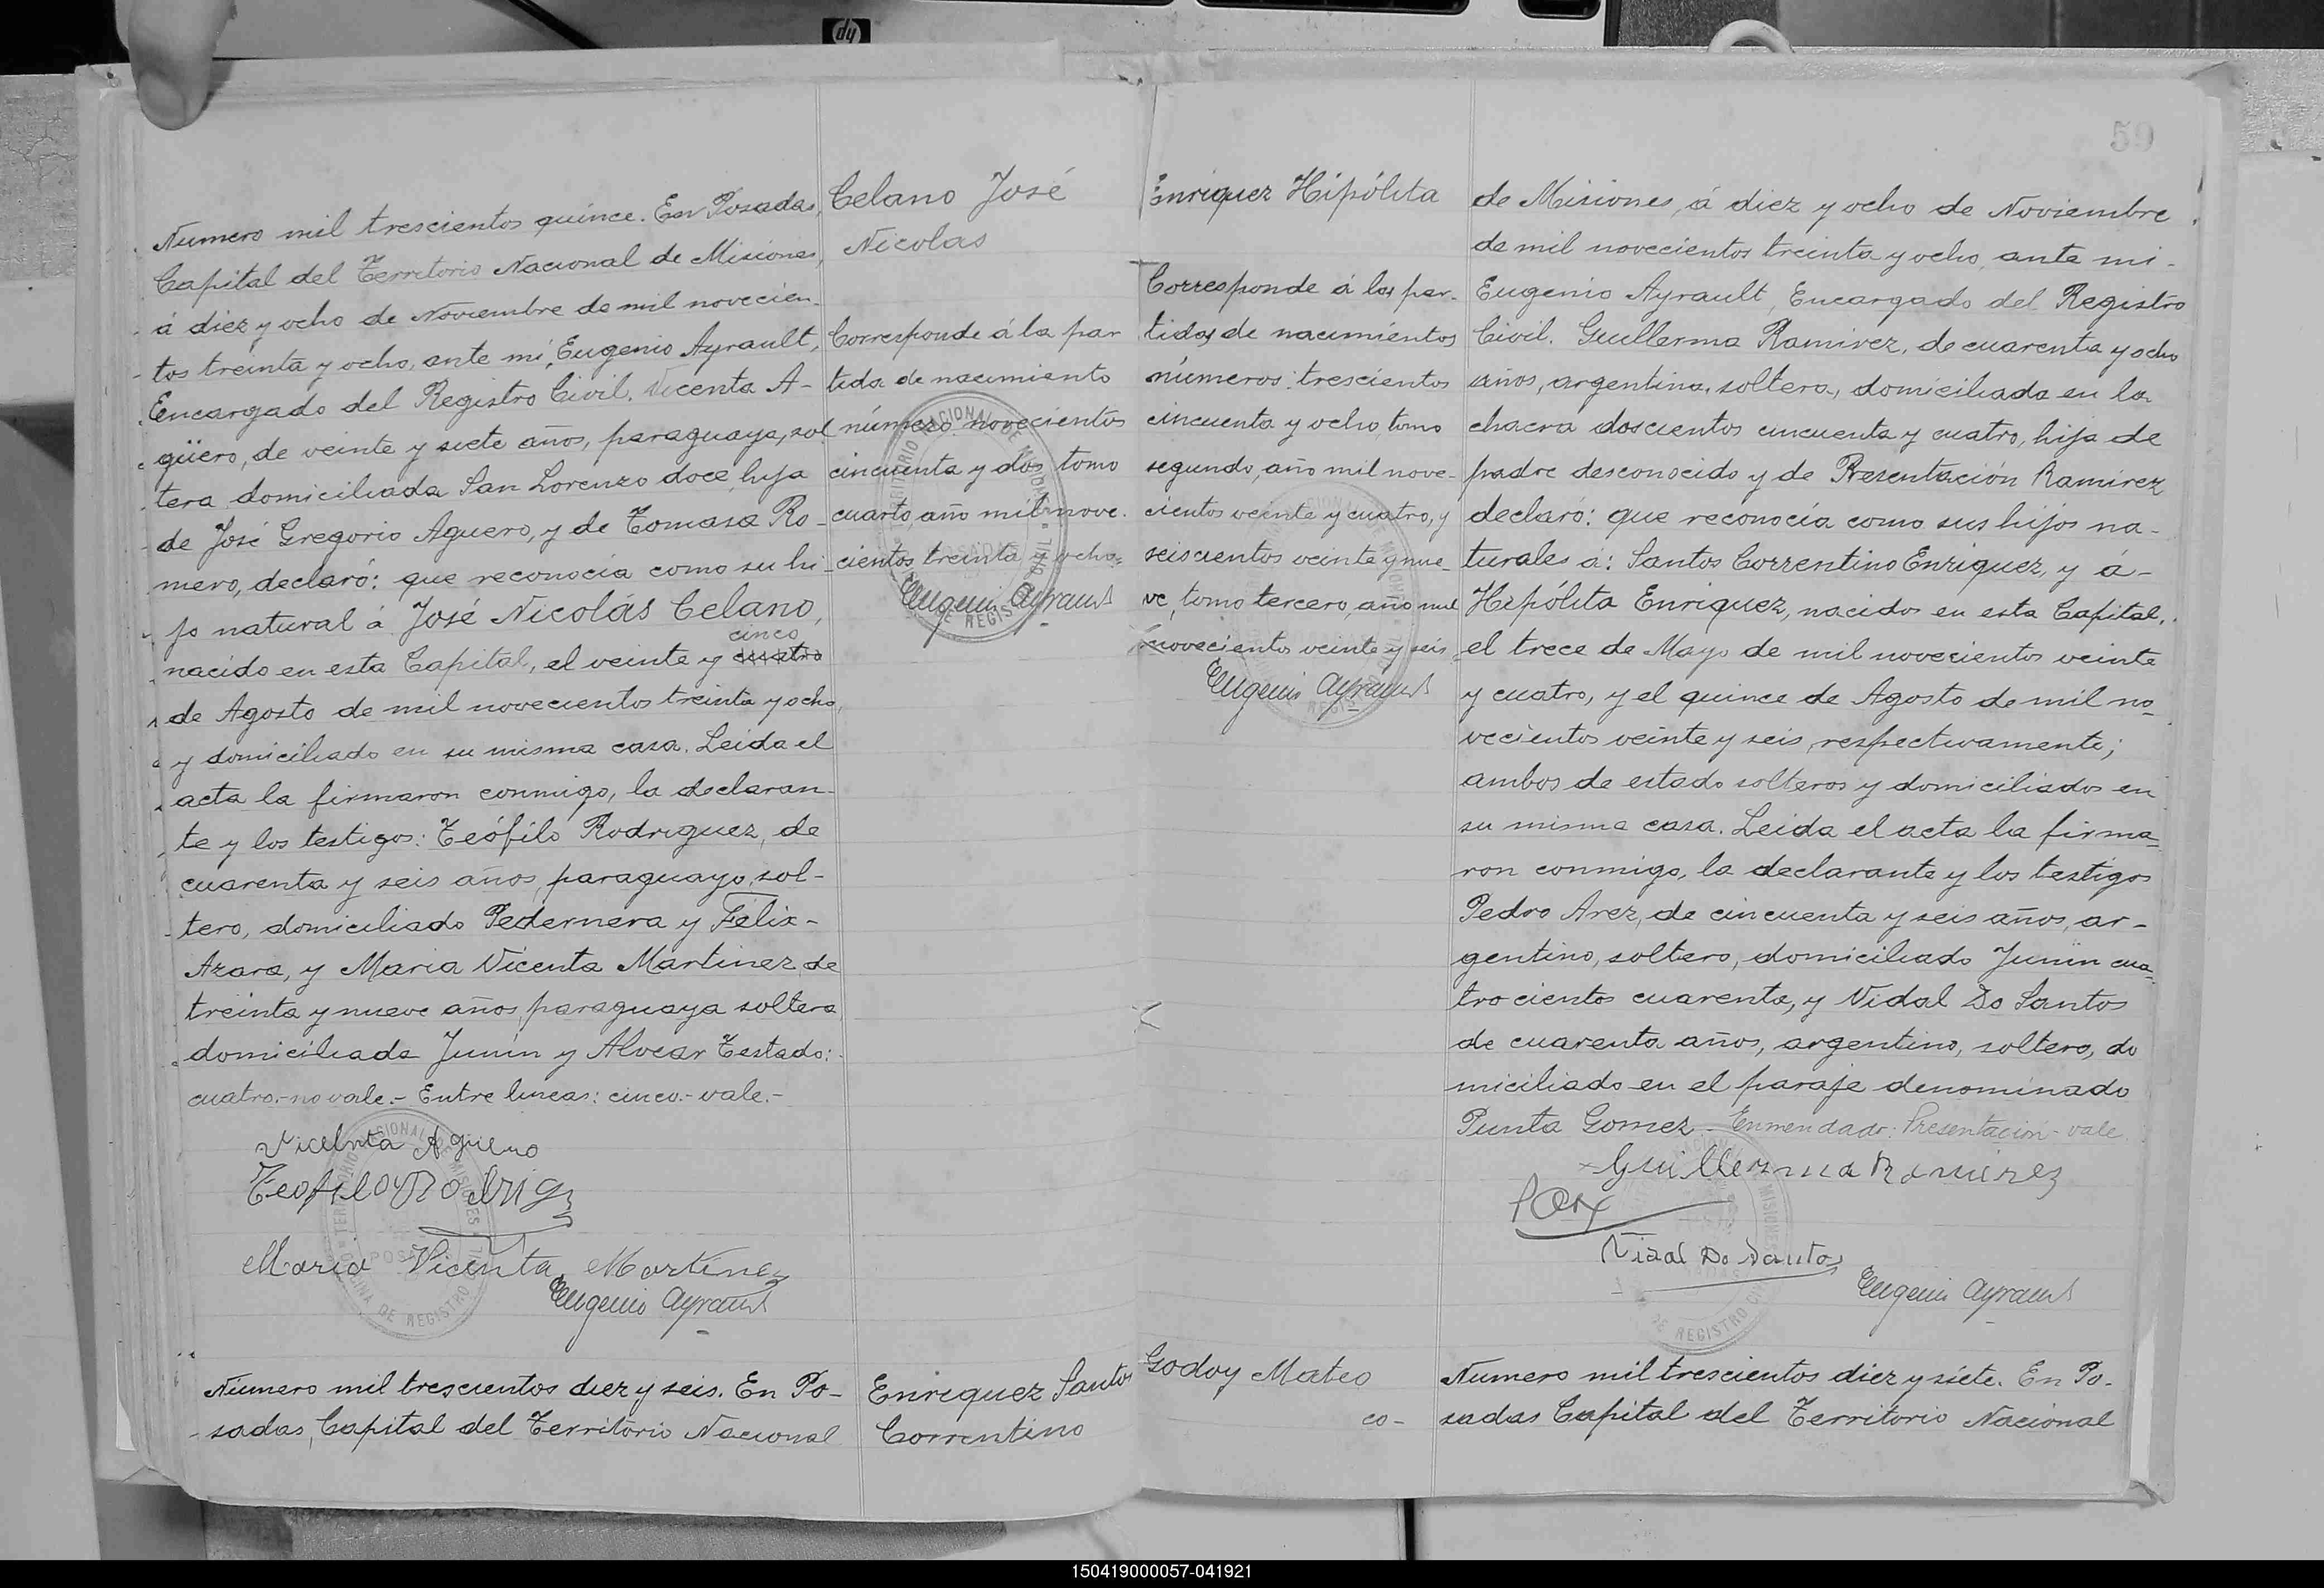 Numero mil trescientos quince. En Posadas,
Capital del Territorio Nacional de Misiones,
á diez y ocho de Noviembre de mil novecien-
tos treinta y ocho, ante mí, Eugenio Ayrault,
Encargado del Registro Civil. Vicenta A-
güero, de veinte y siete años, paraguaya, sol
tera domiciliada San Lorenzo doce, hija
de José Gregorio Aguero, y de Tomasa Ro-
mero, declaró: que reconocía como su hi-
jo natural á José Nicolás Celano,
cinco
nacido en esta Capital, el veinte y cuatro
de Agosto de mil novecientos treinta y ocho,
y domiciliado en su misma casa. Leida el
acta la firmaron conmigo, la declaran-
te y los testigos: Teófilo Rodriguez, de
cuarenta y seis años, paraguayo, sol-
tero, domiciliado Pedernera y Félix-
Azara, y Maria Vicenta Martinez, de
treinta y nueve años, paraguaya soltera
domiciliada Junín y Alvear Testado:
cuatro.-no vale.- Entre lineas: cinco.- vale.-
Vicelnta Agüero
Teofilo Rodrig
Maria Vicenta Martinez
Eugenio Ayrault
Número mil trescientos diez y seis. En Po-
sadas, Capital del Territorio Nacional
Celano José
Nicolas
Corresponde á la par
tida de nacimiento
número novecientos
cincuenta y dos, tomo
cuarto, año mil nove-
cientos treinta y ocho=
Eugenio Ayrault
Enriquez Santos
Correntino
59
Enriquez Hipólita
Corresponde á las par-
tidas de nacimientos
números: trescientos
cincuenta y ocho, tomo
segundo, año mil nove-
cientos veinte y cuatro, y
seiscientos veinte y nue-
ve, tomo tercero, año mil
novecientos veinte y seis
Eugenio Ayrault
Godoy Mateo
co-
de Misiones, á diez y ocho de Noviembre
de mil novecientos treinta y ocho, ante mi-
Eugenio Ayrault, Encargado del Registro
Civil. Guillerma Ramirez, de cuarenta y ocho
años, argentina, soltera, domiciliada en la
chacra doscientos cincuenta y cuatro, hija de
padre desconocido y de Presentación Ramirez
declaró: que reconocía como sus hijos na-
turales á: Santos Correntino Enriquez, y á-
Hipólita Enriquez, nacidos en esta Capital,
el trece de Mayo de mil novecientos veinte
y cuatro, y el quince de Agosto de mil no-
vecientos veinte y seis, respectivamente;
ambos de estado solteros y domiciliados en
su misma casa. Leida el acta la firma=
ron conmigo, la declarante y los testigos
Pedro Arez, de cincuenta y seis años, ar-
gentino, soltero, domiciliado Junín cua=
trocientos cuarenta, y Vidal Do Santos
de cuarenta años, argentino, soltero, do
miciliado en el paraje denominado
Punta Gomez.- Enmendado: Presentación - vale
Guillerma Ramirez
Vidal Do Santos
Eugenio Ayrault
Numero mil trescientos diez y siete. En Po-
sadas Capital del Territorio Nacional
150419000057-041921